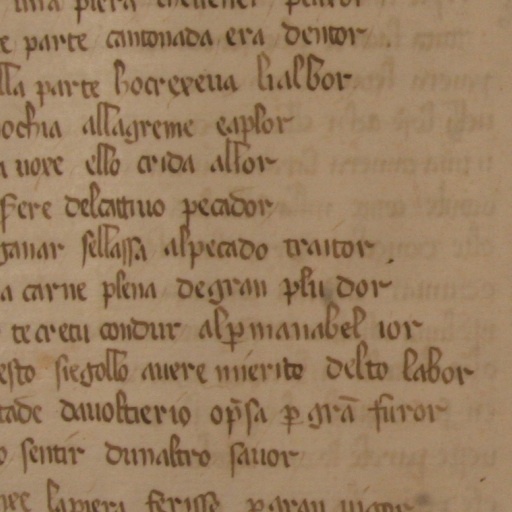 una piera
e parte cantonada era dentor
lla parte hocrexeua li albor
ochia allagreme eaplor
a uoxe ello crida alfor
fere delcattiuo pecador
ganar sellassa alpecado traitor.
a carne plena de gran pludor
te cretu condur alpmanabel ior
esto siegollo auere mierito delto labor
tade dauoltierio opsa p grã furor
o sentir dunaltro sauor
lapiera ferisse p gran